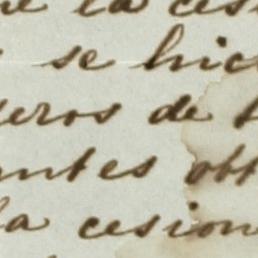 la ces
se hic
eros de
ntes obt
la cesion